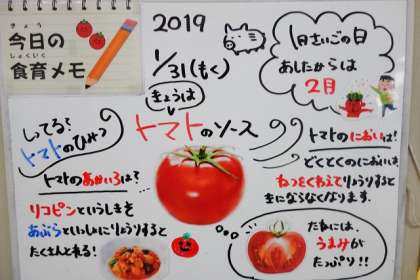 きょう
今日の
しょくいく
食育メモ
2019
1/31(もく)
1月さいごの日
あしたからは
2月
きょうは
トマトのソース
しってる?
トマトのひみつ
トマトのあかいろは?
リコピンというしきそ
あぶらといっしょにりょうりすると
たくさんとれる!
トマトのにおいは!
どくとくのにおいは、
ねつをくわえてりょうりすると
きにならなくなります。
たねには、
うまみが
たっぷり!!